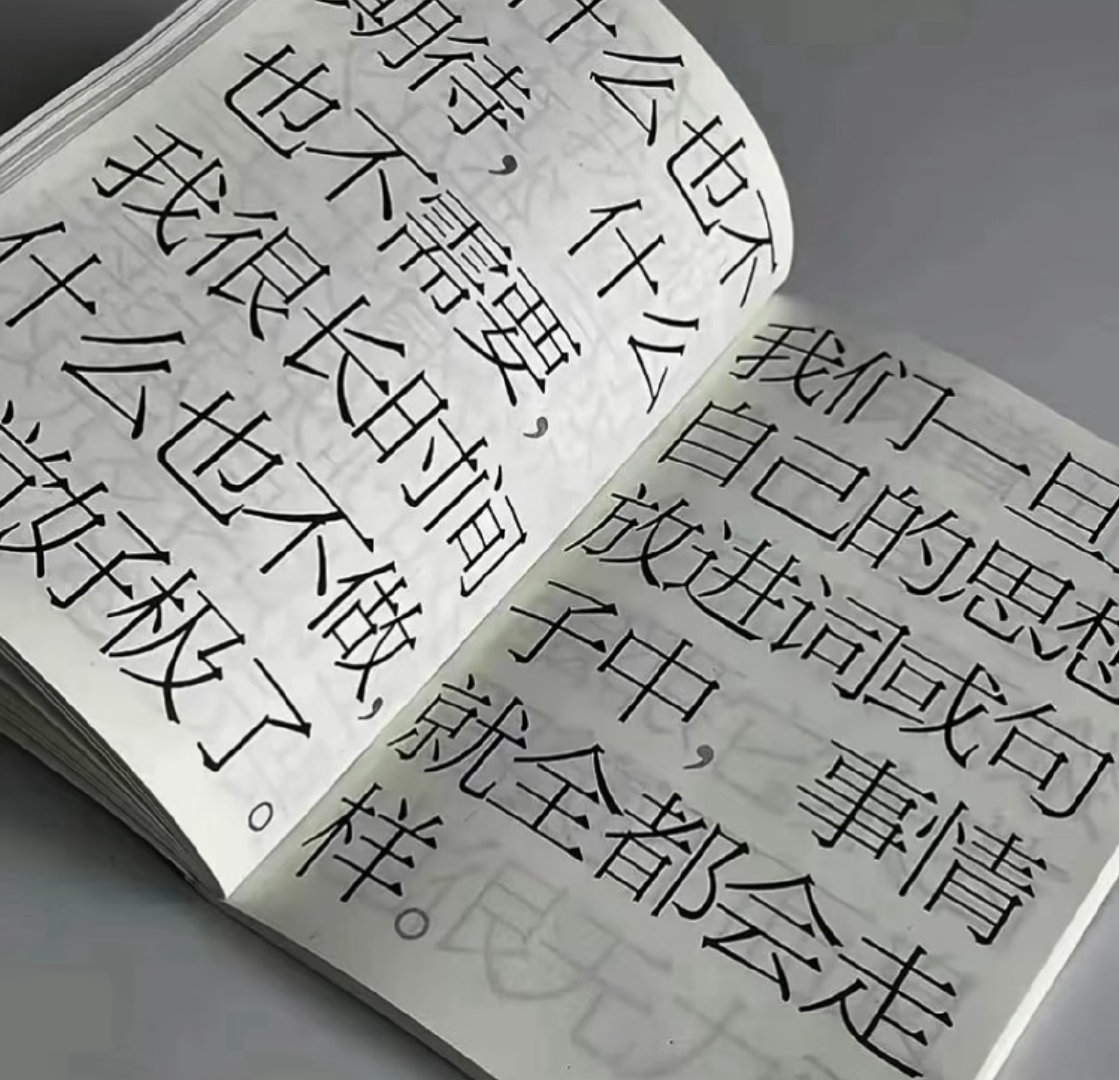 什么也不
期待，什么
也不需要，
我很长时间
什么也不做，
觉好极了。
我们一旦
自己的思想
放进词或句
子中，事情
就全都会走
样。